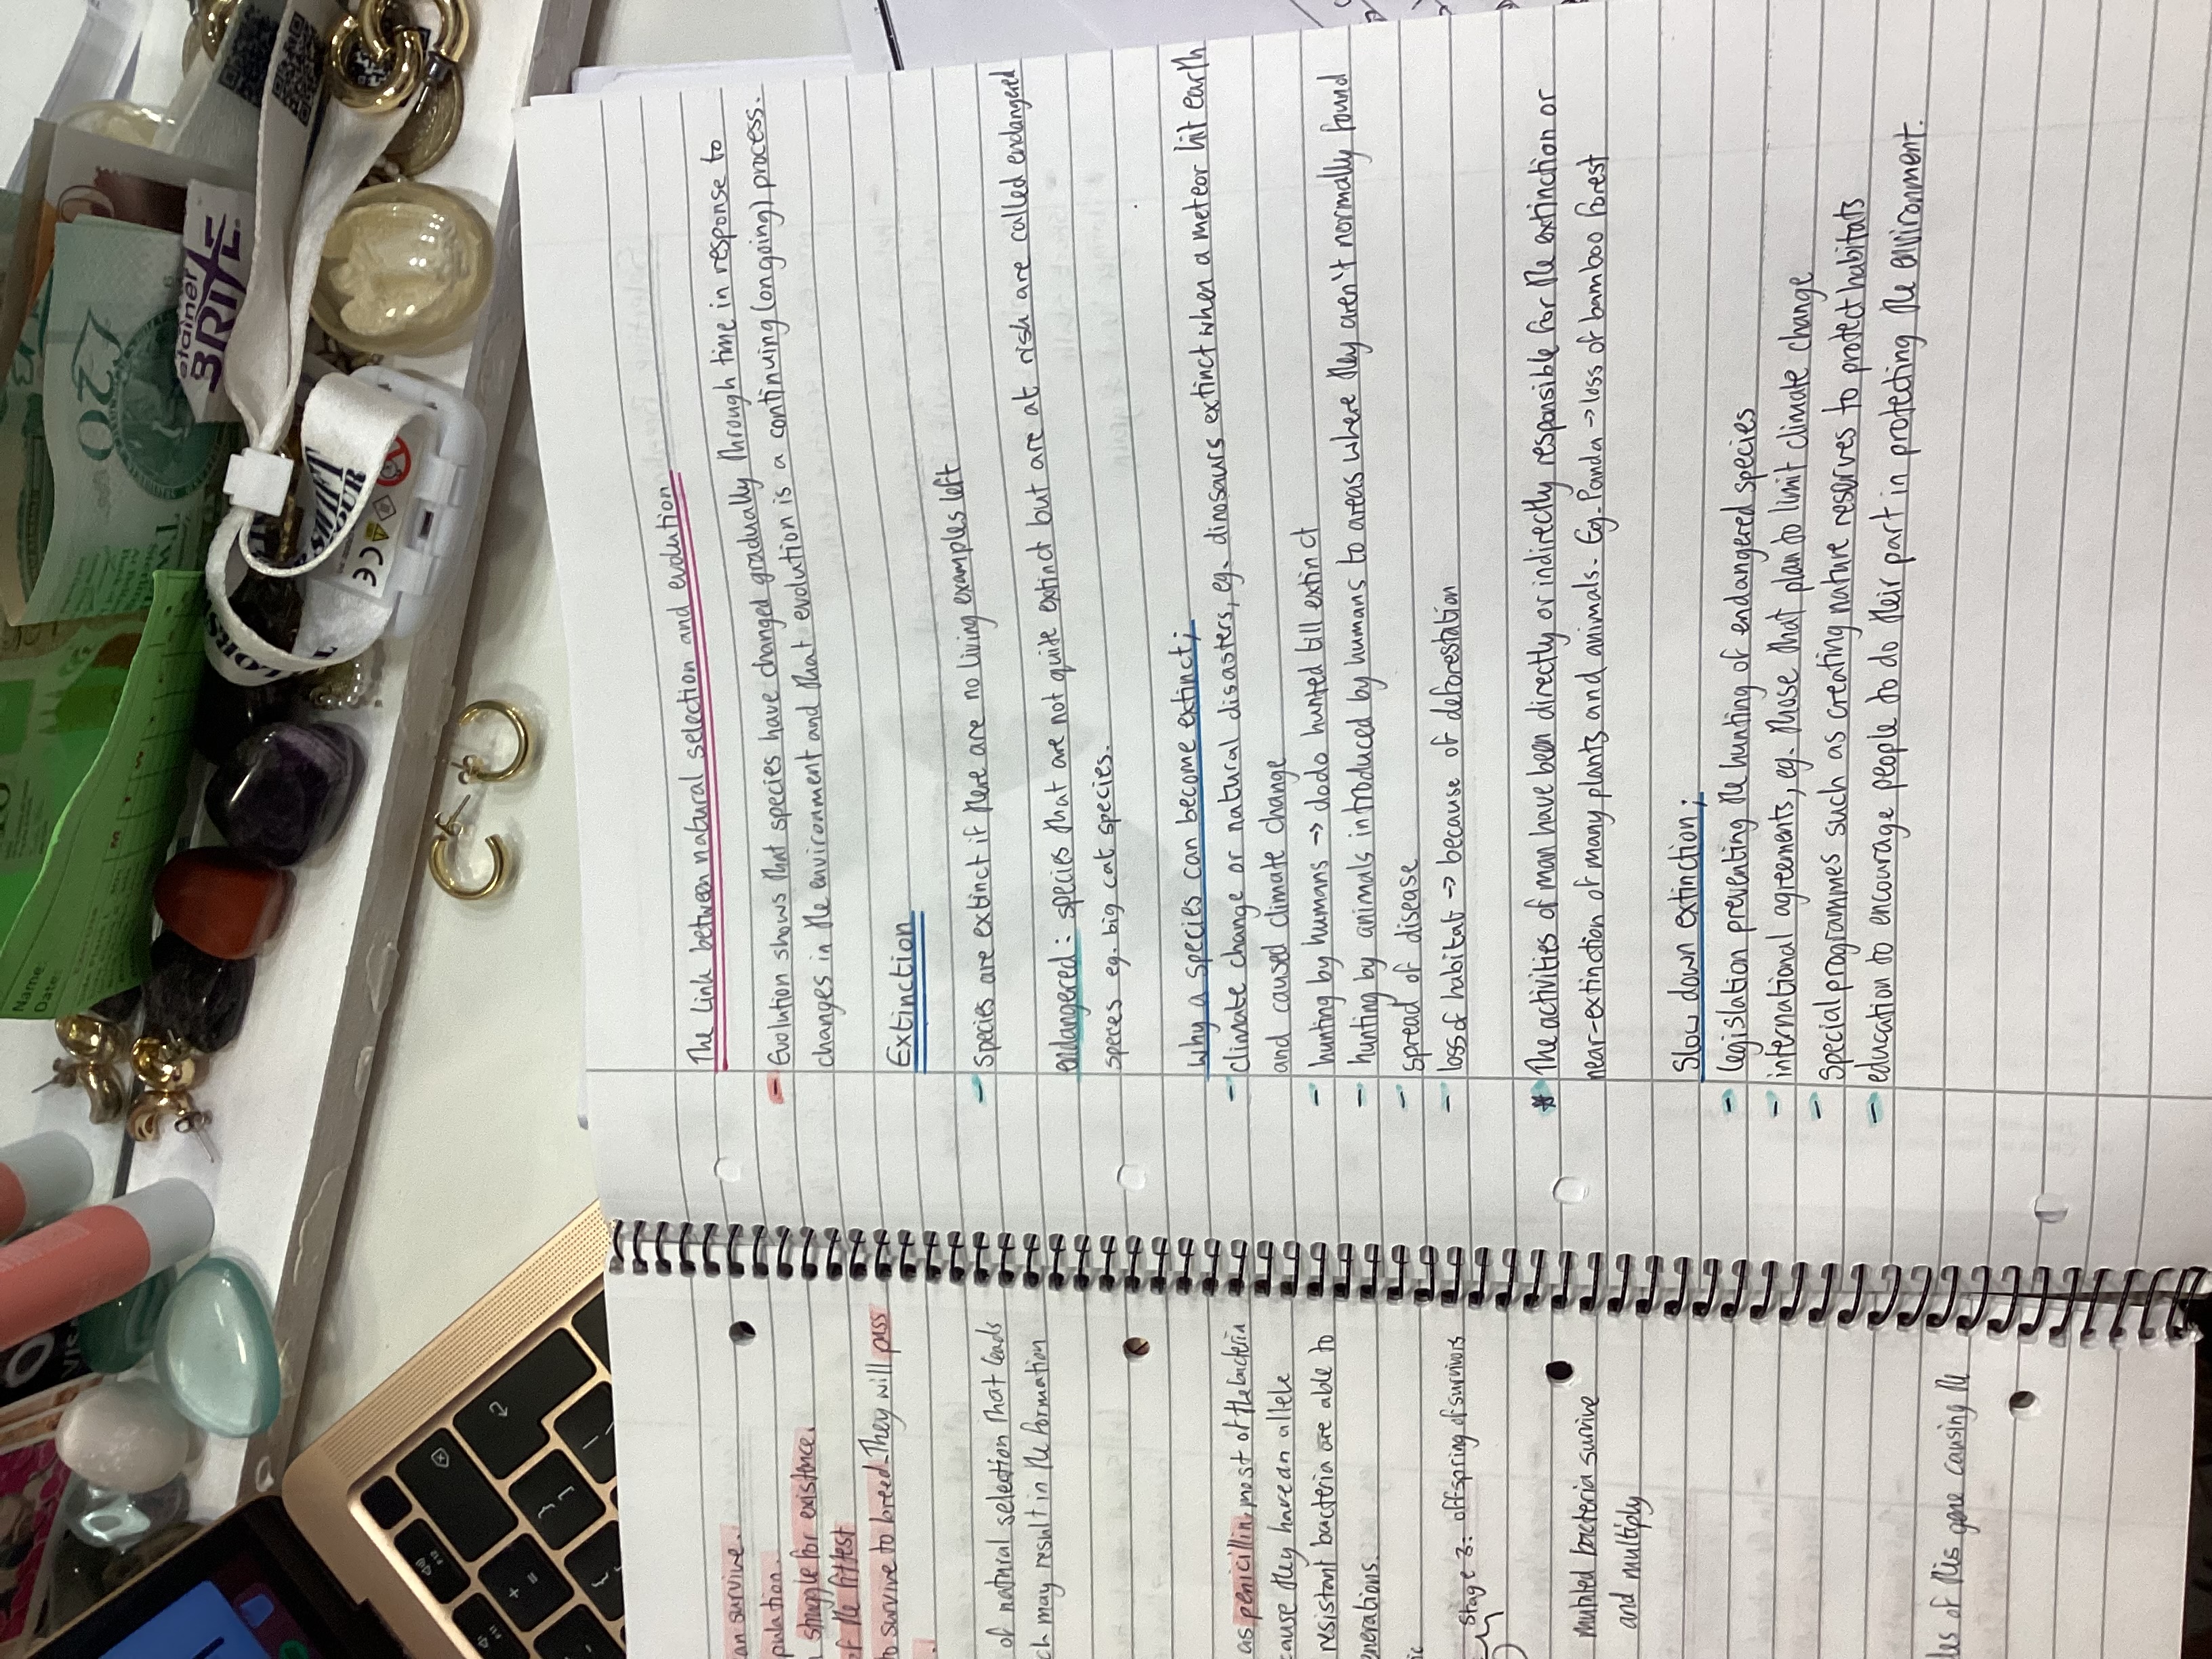 The link between natural selection and evolution
- Evolution shows that species have changed gradually through time in response to
changes in the environment and that evolution is a continuing (ongoing) process.
Extinction
- Species are extinct if there are no living examples left
endangered: species that are not quite extinct but are at risk are called endangered
speces eg. big cat species.
Why a species can become extinct;
- climate change or natural disasters, eg. dinosaurs extinct when a meteor hit earth
and caused climate change
- hunting by humans → dodo hunted till extinct
- hunting by animals introduced by humans to areas where they aren't normally found
- spread of disease
- loss of habitat → because of deforestation
* The activities of man have been directly or indirectly responsible for the extinction or
near-extinction of many plants and animals. Eg. Panda → loss of bamboo forest
Slow down extinction;
- legislation preventing the hunting of endangered species
- international agreements, eg. those that plan to limit climate change
- Special programmes such as creating nature reserves to protect habitats
- education to encourage people to do their part in protecting the environment.
an survive.
pulation.
struggle for existence.
of the fittest
to survive to breed. They will pass
of natural selection that leads
ch may result in the formation
as penicillin, most of the bacteria
cause they have an allele
resistant bacteria are able to
enerations.
Stage 3: offspring of survivors
mutated bacteria survive
and multiply
les of this gene causing the
etainer
BRITE
£20
TWE
Name:
Date:
M T W
CE
YOUR